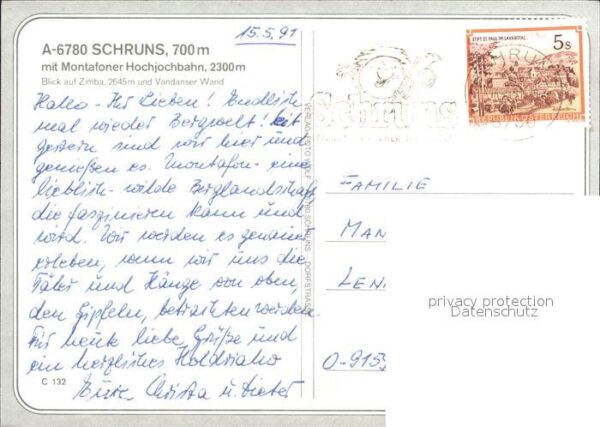 15.5.91
A-6780 SCHRUNS, 700 m
mit Montafoner Hochjochbahn, 2300 m
Blick auf Zimba, 2645 m und Vandanser Wand
Hallo - Ihr Lieben! Endlich
mal wieder Bergwelt! Seit
gestern sind wir hier und
genießen es. Montafon - eine
lieblich-wilde Berglandschaft
die faszinieren kann und
wird. Wir werden es genauer
erleben, wenn wir uns die
Täler und Hänge von oben,
den Gipfeln, betrachten werden.
Für heute liebe Grüße und
ein herzliches Holdriaho
Eure Christa u. Dieter
C 132
STIFT ST. PAUL IM LAVANTTAL
5 S
REPUBLIK ÖSTERREICH
Schruns
FAMILIE
MAN
LEN
O-915
privacy protection
Datenschutz